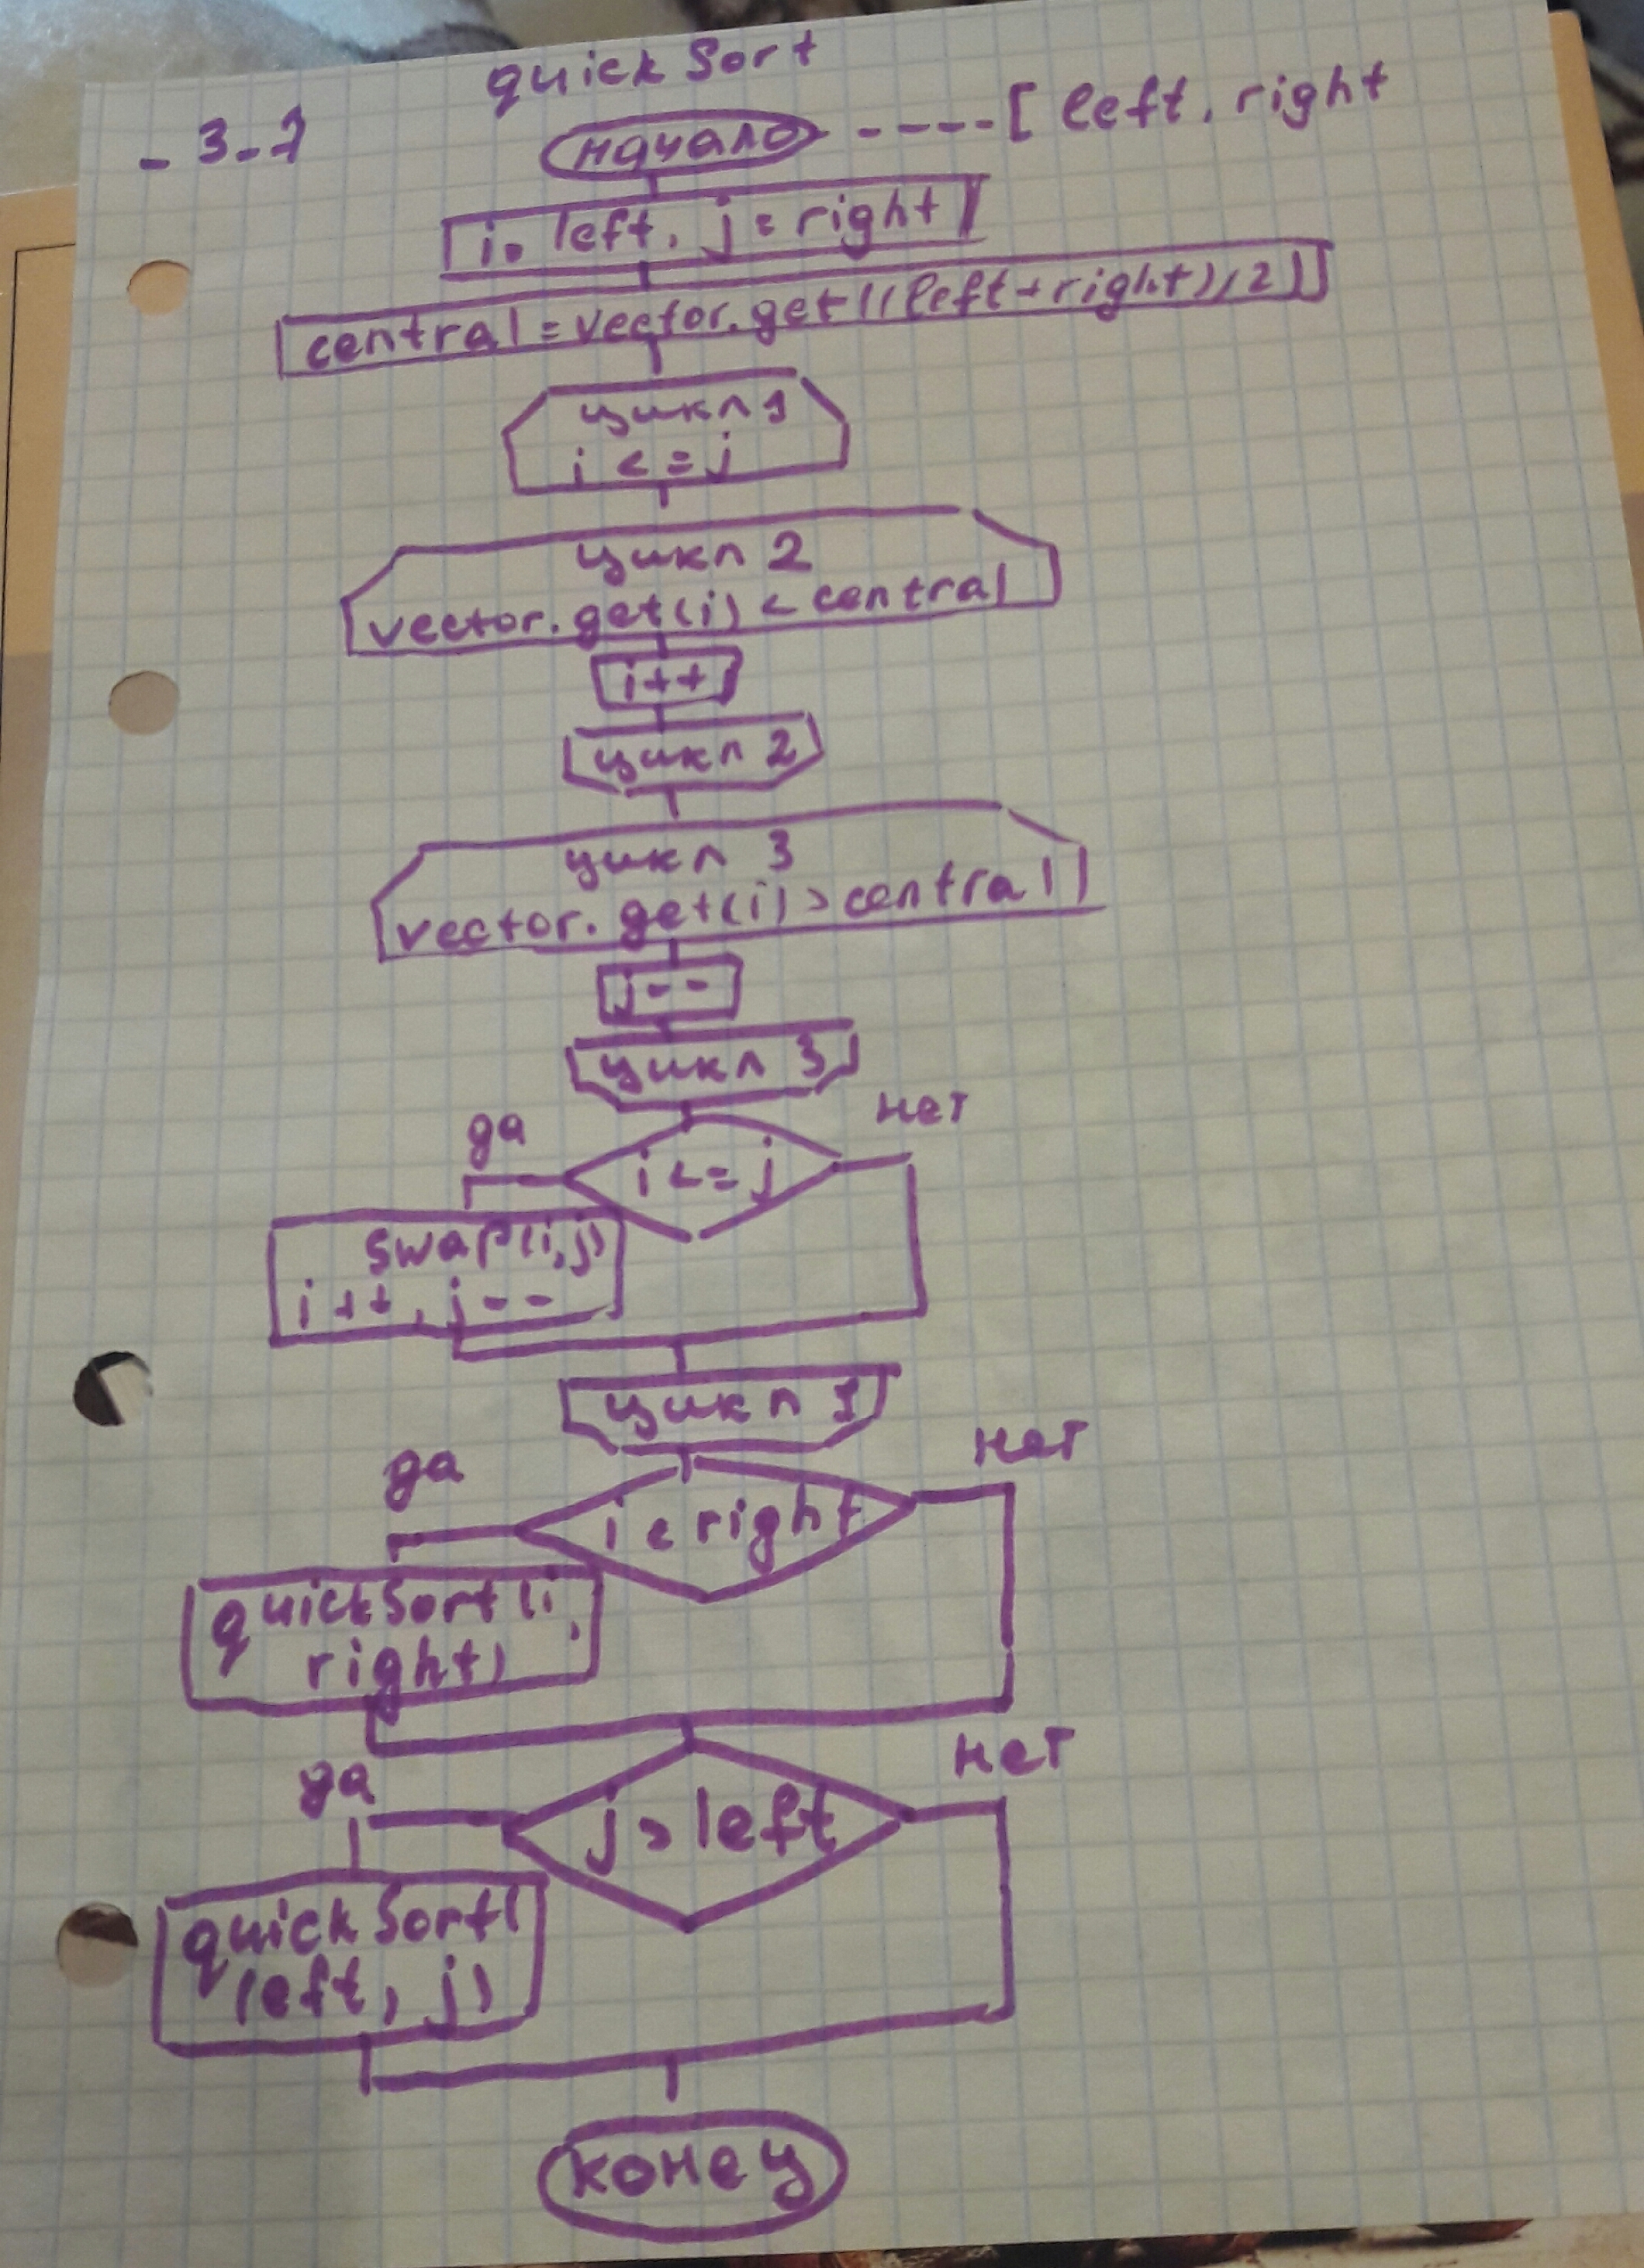 quickSort
- 3-1
начало ----[ left, right
i = left, j = right
central = vector.get((left+right)/2)
цикл 1
i <= j
цикл 2
vector.get(i) < central
i++
цикл 2
цикл 3
vector.get(i) > central
j--
цикл 3
да
нет
i <= j
swap(i,j)
i++, j--
цикл 1
да
нет
i < right
quickSort(i,
right)
да
нет
j > left
quickSort(
left, j)
конец